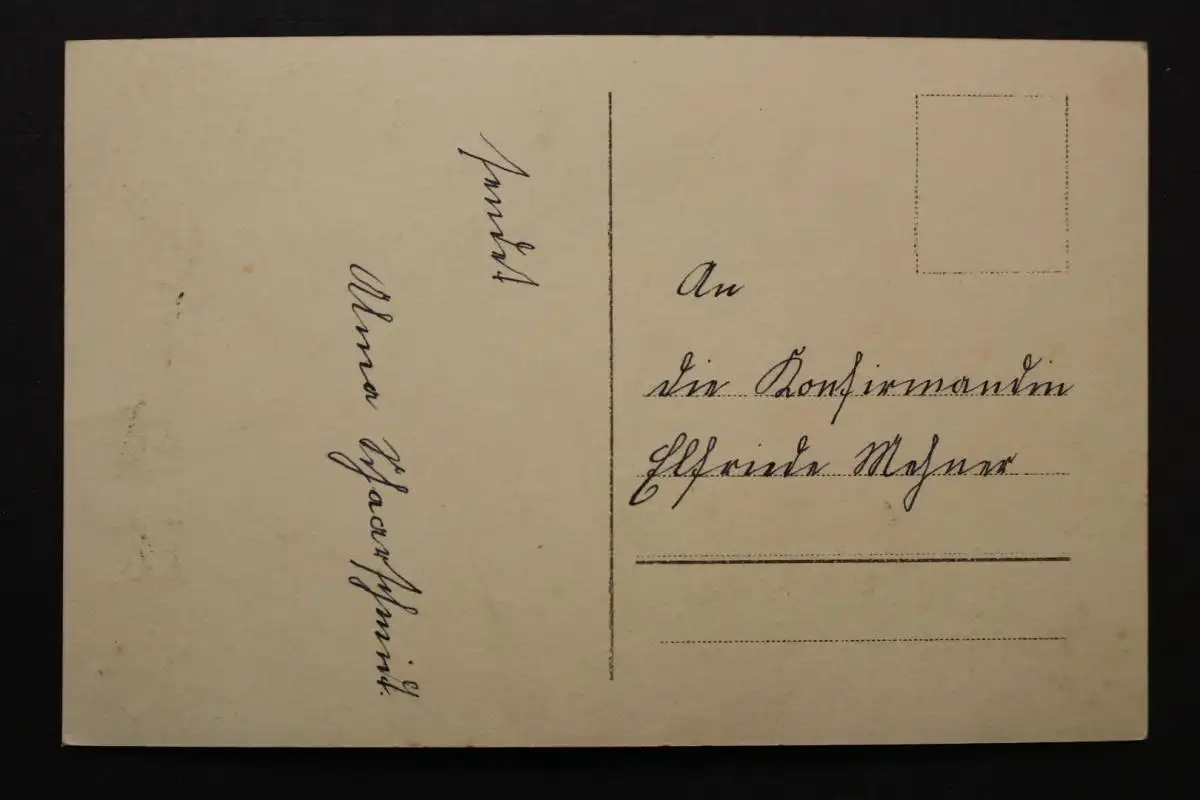 sendet
Alma Schaarschmidt.
An
die Konfirmandin
Elfriede Mehner